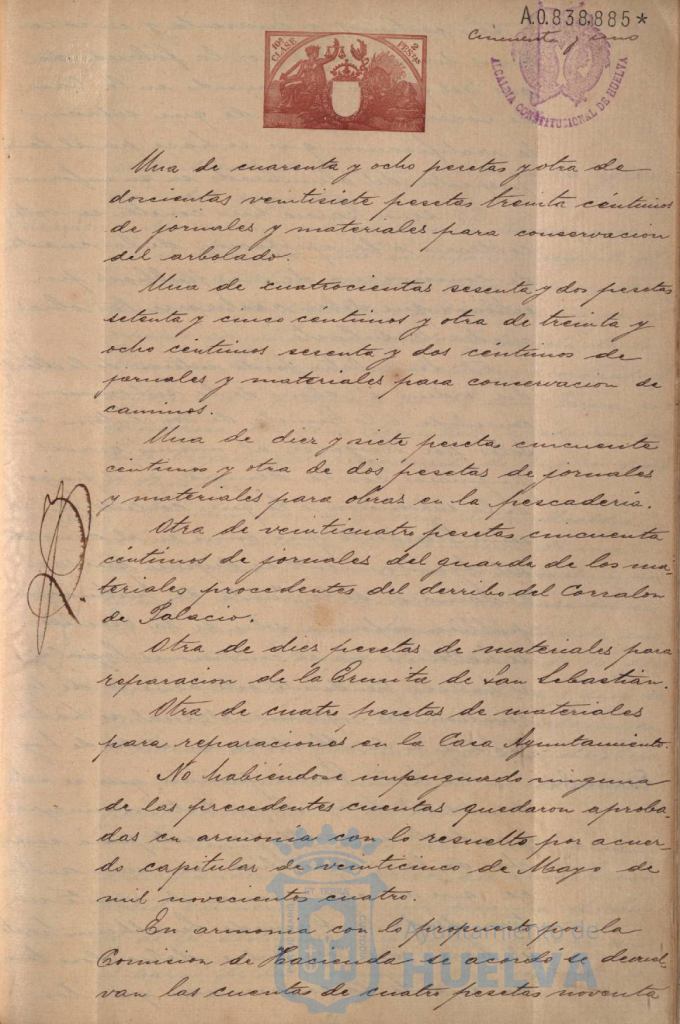 A.0.838.885*
Cincuenta y uno
10ª CLASE
2 PESTAS
ALCALDIA CONSTITUCIONAL DE HUELVA
Una de cuarenta y ocho pesetas y otra de
doscientas veintisiete pesetas treinta céntimos
de jornales y materiales para conservacion
del arbolado.
Una de cuatrocientas sesenta y dos pesetas
setenta y cinco céntimos y otra de treinta y
ocho céntimos sesenta y dos céntimos de
jornales y materiales para conservacion de
caminos.
Una de diez y siete peseta cincuenta
céntimos y otra de dos pesetas de jornales
y materiales para obras en la pescadería.
Otra de veinticuatro pesetas cincuenta
céntimos de jornales del guarda de los ma-
teriales procedentes del derribo del Corralon
de Palacio.
Otra de diez pesetas de materiales para
reparacion de la Ermita de San Sebastián.
Otra de cuatro pesetas de materiales
para reparaciones en la Casa Ayuntamiento.
No habiéndose impugnado ninguna
de las precedentes cuentas quedaron aproba-
das en armonía con lo resuelto por acuer-
do capitular de veinticinco de Mayo de
mil novecientos cuatro.
En armonia con lo propuesto por la
Comision de Hacienda se acordó se devuel-
van las cuentas de cuatro pesetas noventa
Ayuntamiento de
HUELVA